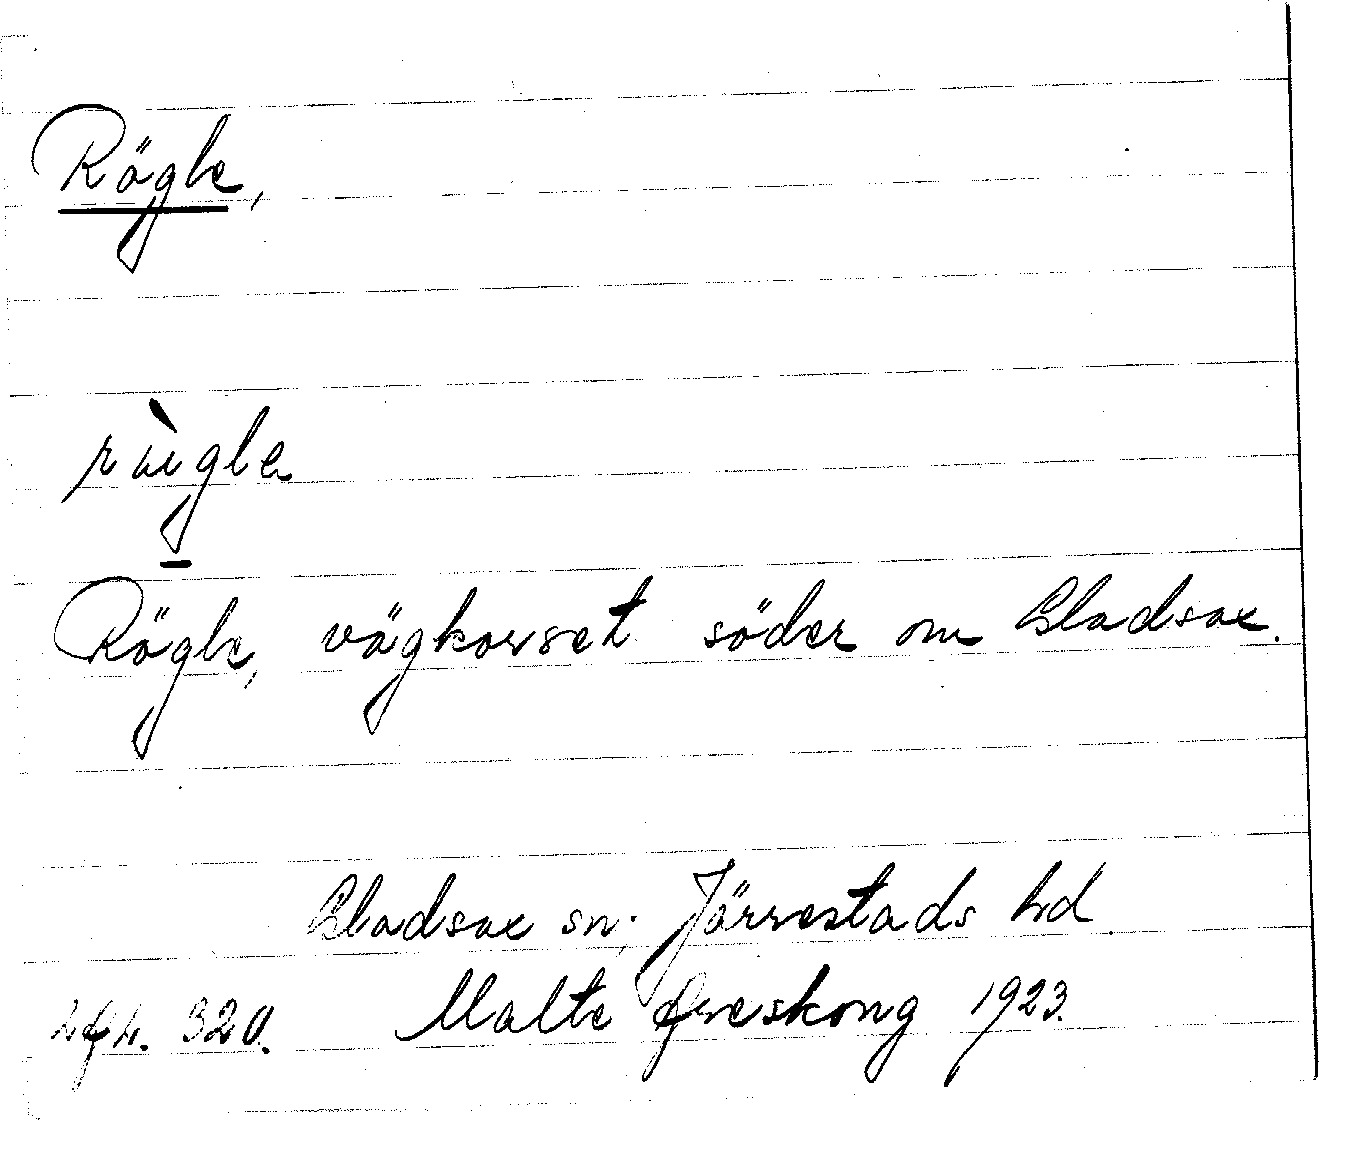 Rögle,
ràigle
Rögle, vägkorset söder om Gladsax.
Gladsax sn; Järrestads hd.
320. Malte Areskong 1923.